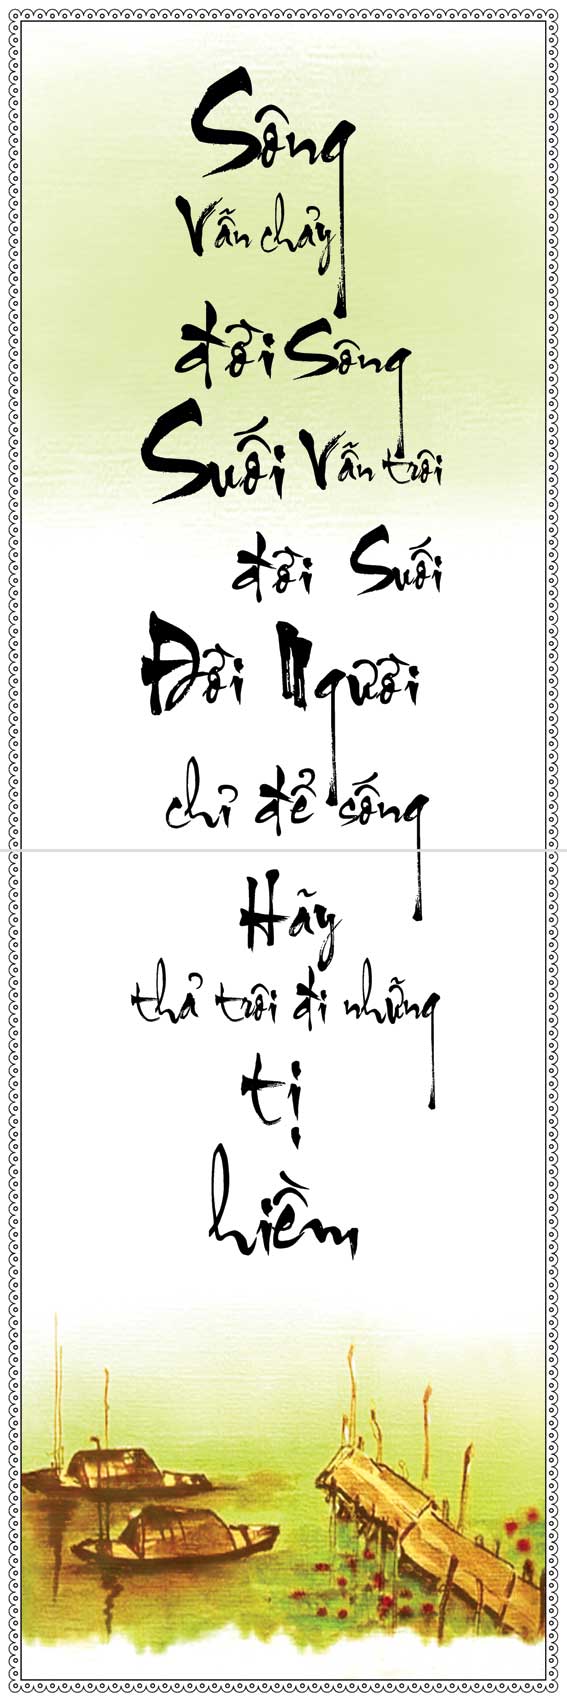 Sông
Vẫn chảy
đời Sông
Suối Vẫn trôi
đời Suối
Đời Người
chỉ để sống
Hãy
thả trôi đi những
tị
hiềm